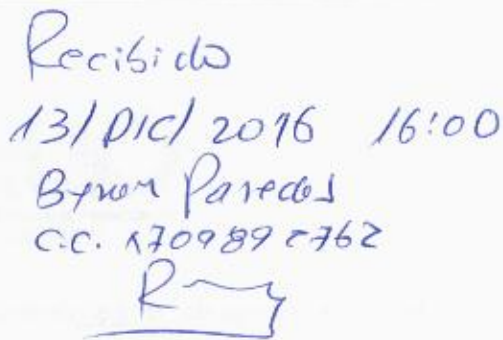 Recibido
13/DIC/2016 16:00
Byron Paredes
C.C. 1709892762